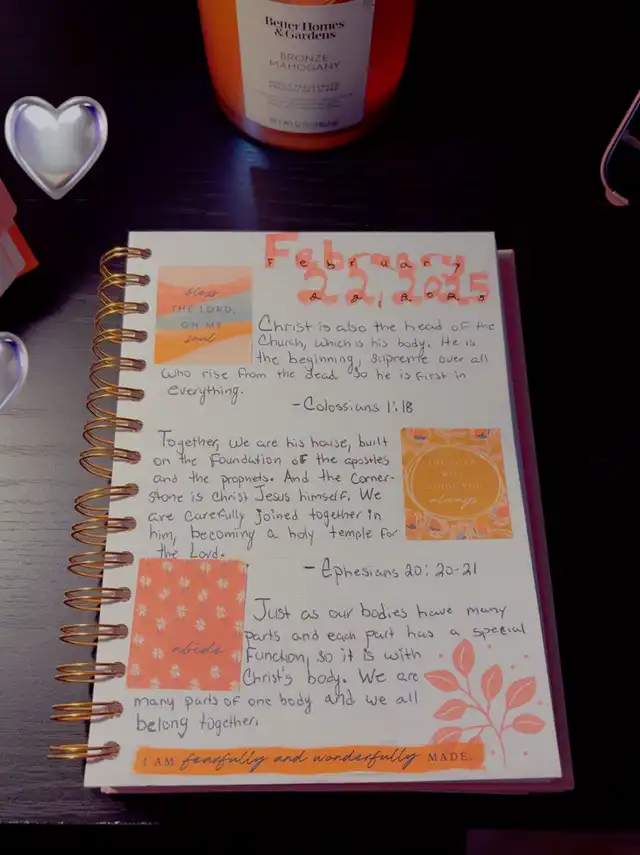 Better Homes
& Gardens
BRONZE
MAHOGANY
February
22, 2025
February
22, 2025
bless
THE LORD,
OH MY
soul
Christ is also the head of the
Church, which is his body. He is
the beginning, supreme over all
who rise from the dead so he is first in
everything.
-Colossians 1:18
Together, we are his house, built
on the Foundation of the apostles
and the prophets. And the Corner-
stone is Christ Jesus himself. We
are carefully joined together in
him, becoming a holy temple for
the Lord.
- Ephesians 20:20-21
THE LORD
WILL
GUIDE YOU
always
abide
Just as our bodies have many
parts and each part has a special
Function, so it is with
Christ's body. We are
many parts of one body and we all
belong together.
I AM fearfully and wonderfully MADE.